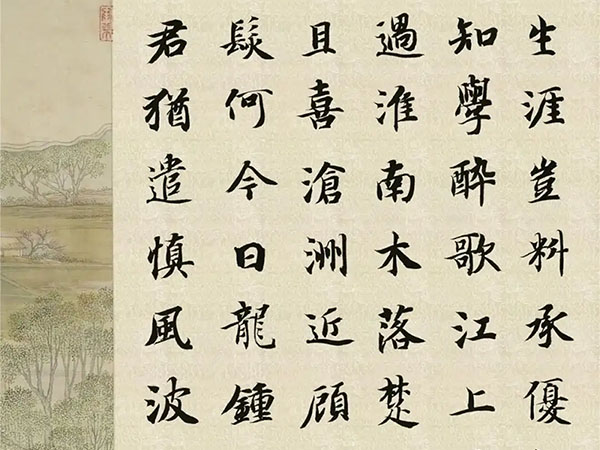 生涯豈料承優
知學醉歌江上
過淮南木落楚
且喜滄洲近顧
髮何今日龍鍾
君猶遣慎風波